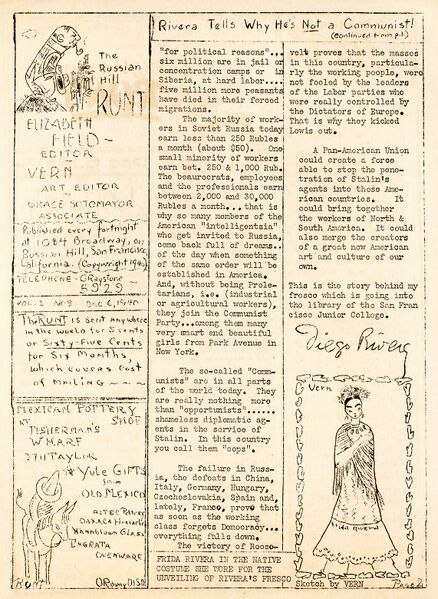 Rivera Tells Why He's Not a Communist!
(Continued from p.1.)
The
Russian
Hill
RUNT
ELIZABETH
FIELD-
EDITOR
VERN
ART EDITOR
GRACE SOTOMAYOR
ASSOCIATE
Published every fortnight
at 1084 Broadway, on
Russian Hill, San Francisco,
California. (Copyright 1940)
TELEPHONE - GRaystone
5929
VOL. 1 No 9 Dec 6, 1940
The RUNT is sent anywhere
in the world for 5 cents
or Sixty-Five Cents
for Six Months,
which covers cost
of mailing ~ ~ ~
MEXICAN POTTERY
SHOP
AT FISHERMAN'S
WHARF
271 TAYLOR
Yule GIFTS
from
OLD MEXICO
AZTEC
OAXACA
Glass
OVENWARE
RUNT
"for political reasons"...
six million are in jail or
concentration camps or in
Siberia, at hard labor....
five million more peasants
have died in their forced
migrations.
The majority of work-
ers in Soviet Russia today
earn less than 250 Rubles
a month (about $50). One
small minority of workers
earn bet. 250 & 1,000 Rub.
The beaurocrats, employees
and the professionals earn
between 2,000 and 30,000
Rubles a month... that is
why so many members of the
American "intelligentsia"
who get invited to Russia,
come back full of dreams..
of the day when something
of the same order will be
established in America.
And, without being Prole-
tarians, i.e. (industrial
or agricultural workers),
they join the Communist
Party...among them many
very smart and beautiful
girls from Park Avenue in
New York.
The so-called "Comm-
unists" are in all parts
of the world today. They
are really nothing more
than "opportunists"......
shameless diplomatic ag-
ents in the service of
Stalin. In this country
you call them "cops".
The failure in Russ-
ia, the defeats in China,
Italy, Germany, Hungary,
Czechoslovakia, Spain and,
lately, France, prove that
as soon as the working
class forgets Democracy...
everything falls down.
The victory of Roose-
velt proves that the masses
in this country, particula-
rly the working people, were
not fooled by the leaders
of the Labor parties who
were really controlled by
the Dictators of Europe.
That is why they kicked
Lewis out.
A Pan-American Union
could create a force
able to stop the pene-
tration of Stalin's
agents into those Ame-
rican countries. It
could bring together
the workers of North &
South America. It could
also merge the creators
of a great new American
art and culture of our
own.
This is the story behind my
fresco which is going into
the library of the San Fran
cisco Junior College.
Diego Rivera
Vern
Frida Rivera
FRIDA RIVERA IN THE NATIVE
COSTUME SHE WORE FOR THE
UNVEILING OF RIVERA'S FRESCO
Sketch by VERN